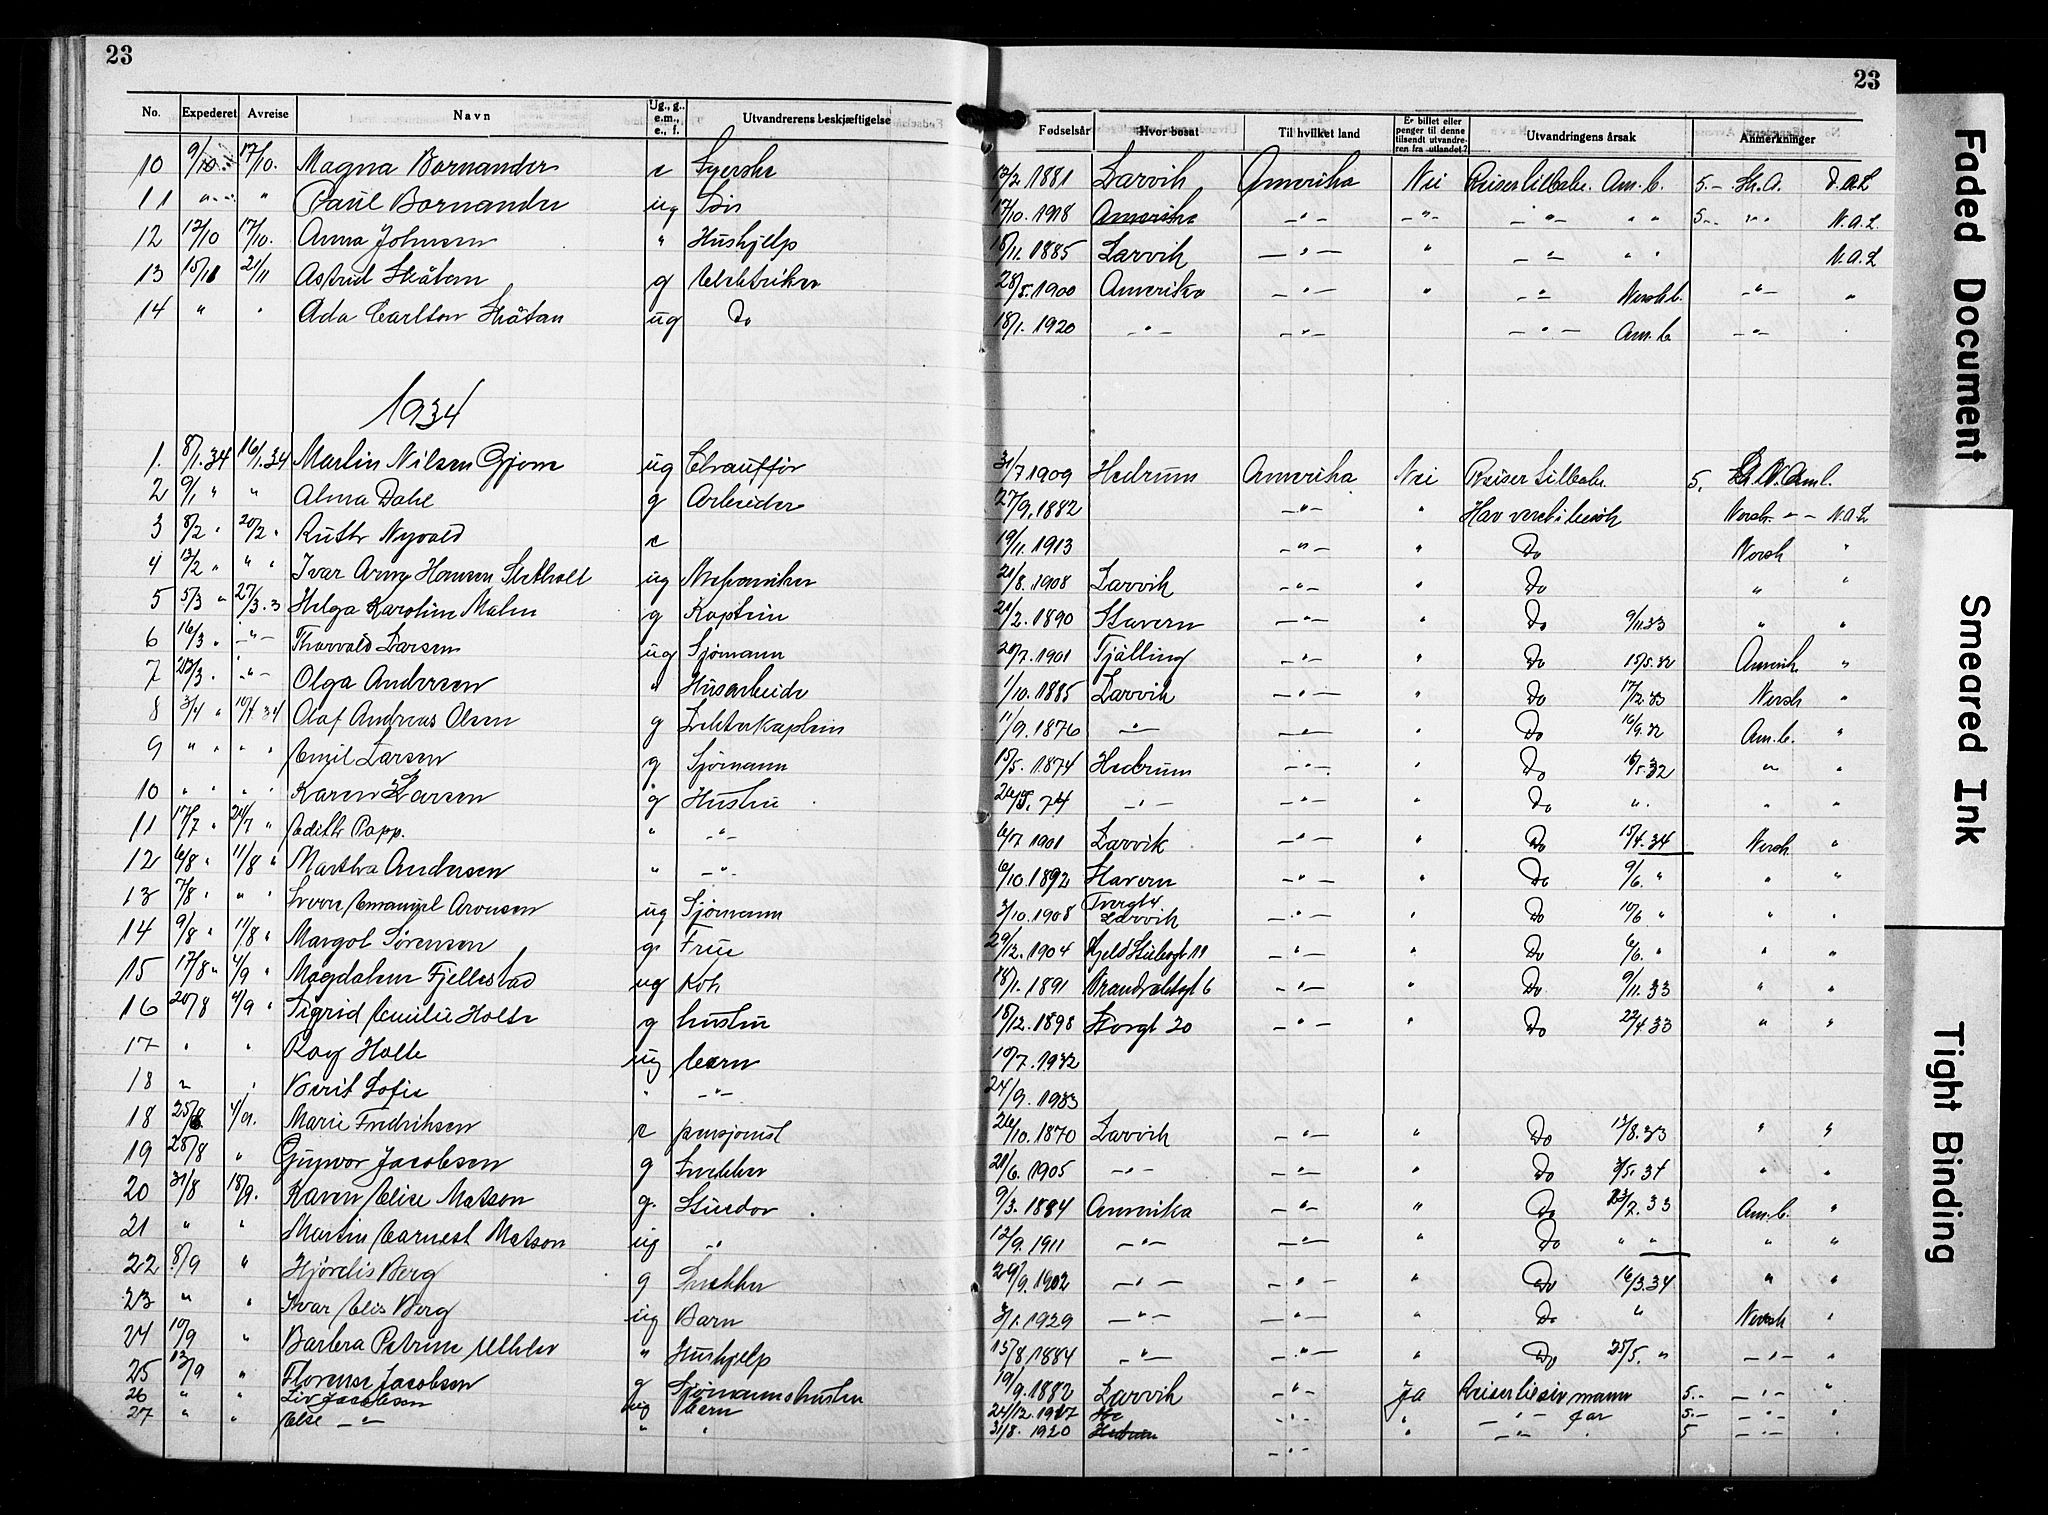 23
23
No. Expederet Avreise Navn Ug., g., e.m., e., f. Utvandrerens beskjæftigelse Fødselsår Hvor bosat Til hvilket land Er billet eller penger til denne tilsendt utvandreren fra utlandet? Utvandringens årsak Anmerkninger
10 9/10 17/10. Magna Bornander e Syerske 12/2 1881 Larvik Amerika Nei Reiser tilbake. Am. b. 5.-
11 " " Paul Bornander ug Søn 17/10. 1918 Amerika -"- -"- -"- " " 5-- N.A.L.
12 12/10 17/10. Anna Johnsen " Hushjelp 18/11. 1885 Larvik -"- " -"- " " N.A.L
13 21/11 Astrid Skåtan g 28/5. 1900 Amerika -"- " -"- Norsk b. -"- "
14 " " Ada Carlton Skåtan ug Do 18/1. 1920 -"- -"- -"- Am. b -"-
1934
1. 8/1.34 16/1.34 Martin Nilsen Gjone ug 31/7 1909 Hedrum Amerika Nei Reiser tilbake. 5.
2 9/1 " " Alma Dahl g Arbeider 27/9. 1882 -"- " Har vært i besøk Norsk. -"- N.A.L
3 8/2 " 20/2 " Ruth Nyvold e 19/11. 1913 -"- " Do Norsk "
4 13/2 " " " Ivar Arne Hansen ug Mekaniker 21/8. 1908 Larvik -"- " Do " "
5 5/3 " 27/3.3 Helga Karoline Malm g Kaptein 21/2. 1890 Stavern -"- " Do 9/11 33 " "
6 16/3 " -"- Thorvald Larsen ug Sjømann 20/7. 1901 Tjølling -"- " Do 15/5. 32 Amerik. "
7 23/3 " -"- Olga Andersen " Husarbeide 1/10. 1885 Larvik -"- " Do 17/12 33 Norsk "
8 3/4 " 10/4 34 Olaf Andreas Olsen g 11/9. 1876 -"- -"- " Do 16/9. 32 Am. b. "
9 " " " " Emil Larsen g Sjømann 15/5. 1874 Hedrum -"- " Do 16/5. 32 " "
10 " " " " Karen Larsen g Hustru 74 -"- -"- " Do " " "
11 17/7 " 24/7 " Edith Popp. " -"- 6/7 1901 Larvik -"- " Do 15/4. 34 Norsk "
12 6/8 " 11/8 " Martha Andersen " -"- 6/10. 1892 Stavern -"- " Do 9/6. " " "
13 7/8 " " " Emanuel Aronsen ug Sjømann 3/10. 1908 Torggt 4 Larvik -"- " Do 10/6 " " "
14 9/8 " 11/8 " Margot Sørensen g. Frue 29/12. 1904 -"- " Do 6/6. " " "
15 17/8 " 4/9 " Magdalene Fjellestad ug Kok 18/1. 1891 -"- " Do 9/11. 33 " "
16 20/8 4/9 " Sigrid Emilie Holte g hustru 18/12. 1898 Storgt 20 -"- " Do 22/4 33 " "
17 " " Roy Holte ug barn 10/7. 1932
18 " " Berit Sofie " -"- 24/9. 1933
18 25/8 4/9. Marie Fredriksen e pensjonist 26/10. 1870 Larvik -"- " Do 13/8. 33 " "
19 28/8 " Gunvor Jacobsen g Snekker 21/6. 1905 -"- -"- " Do 3/5. 34 " "
20 31/8 18/9. Karen Elise Matson g. 9/3. 1884 Amerika -"- " Do 23/2. 33 Am. b. "
21 " " Martin Earnest Matson ug -"- 12/9. 1911 -"- -"- " Do " " " "
22 8/9 " Hjørdis Berg g Snekker 29/9. 1902 -"- -"- " Do 16/3. 34 " "
23 " " Ivar Elis Berg ug Barn 3/1. 1929 -"- -"- " Do " Norsk "
24 10/9 " Barbra Petrine " Hushjelp 15/8. 1884 -"- -"- " Do 25/5. " -"- "
25 13/9 " Florense Jacobsen g Sjømannshustru 19/9. 1882 Larvik -"- Ja Reiser til sin mann 5.- -"- "
26 " " Liv Jacobsen ug barn 24/12. 1917 -"- " -"- far 5.- -"- "
27 " " Else -"- " " 31/8. 1920 Hedrum -"- " -"- " 5 -"- "
Faded Document
Smeared Ink
Tight Binding